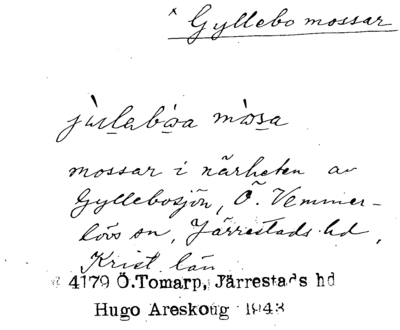 × Gyllebo mossar
mossar i närheten av
Gyllebosjön, Ö. Vemmer-
lövs sn, Järrestads hd,
Krist. län
4179 Ö.Tomarp, Järrestads hd
Hugo Areskoug 1943